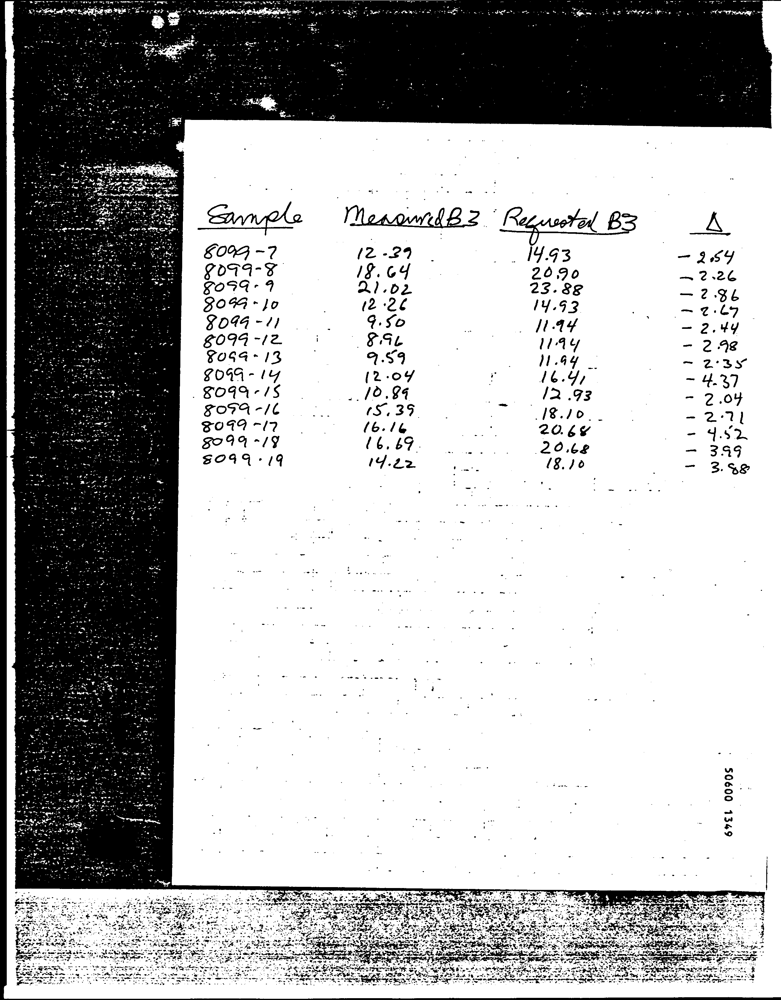 Sample Measured B3 Requested B3 Δ
8099-7 12.39 14.93 - 2.54
8099-8 18.64 20.90 - 2.26
8099-9 21.02 23.88 - 2.86
8099-10 12.26 14.93 - 2.67
8099-11 9.50 11.94 - 2.44
8099-12 8.96 11.94 - 2.98
8099-13 9.59 11.94 - 2.35
8099-14 12.04 16.41 - 4.37
8099-15 10.89 12.93 - 2.04
8099-16 15.39 18.10 - 2.71
8099-17 16.16 20.68 - 4.52
8099-18 16.69 20.68 - 3.99
8099-19 14.22 18.10 - 3.88
50600 1349